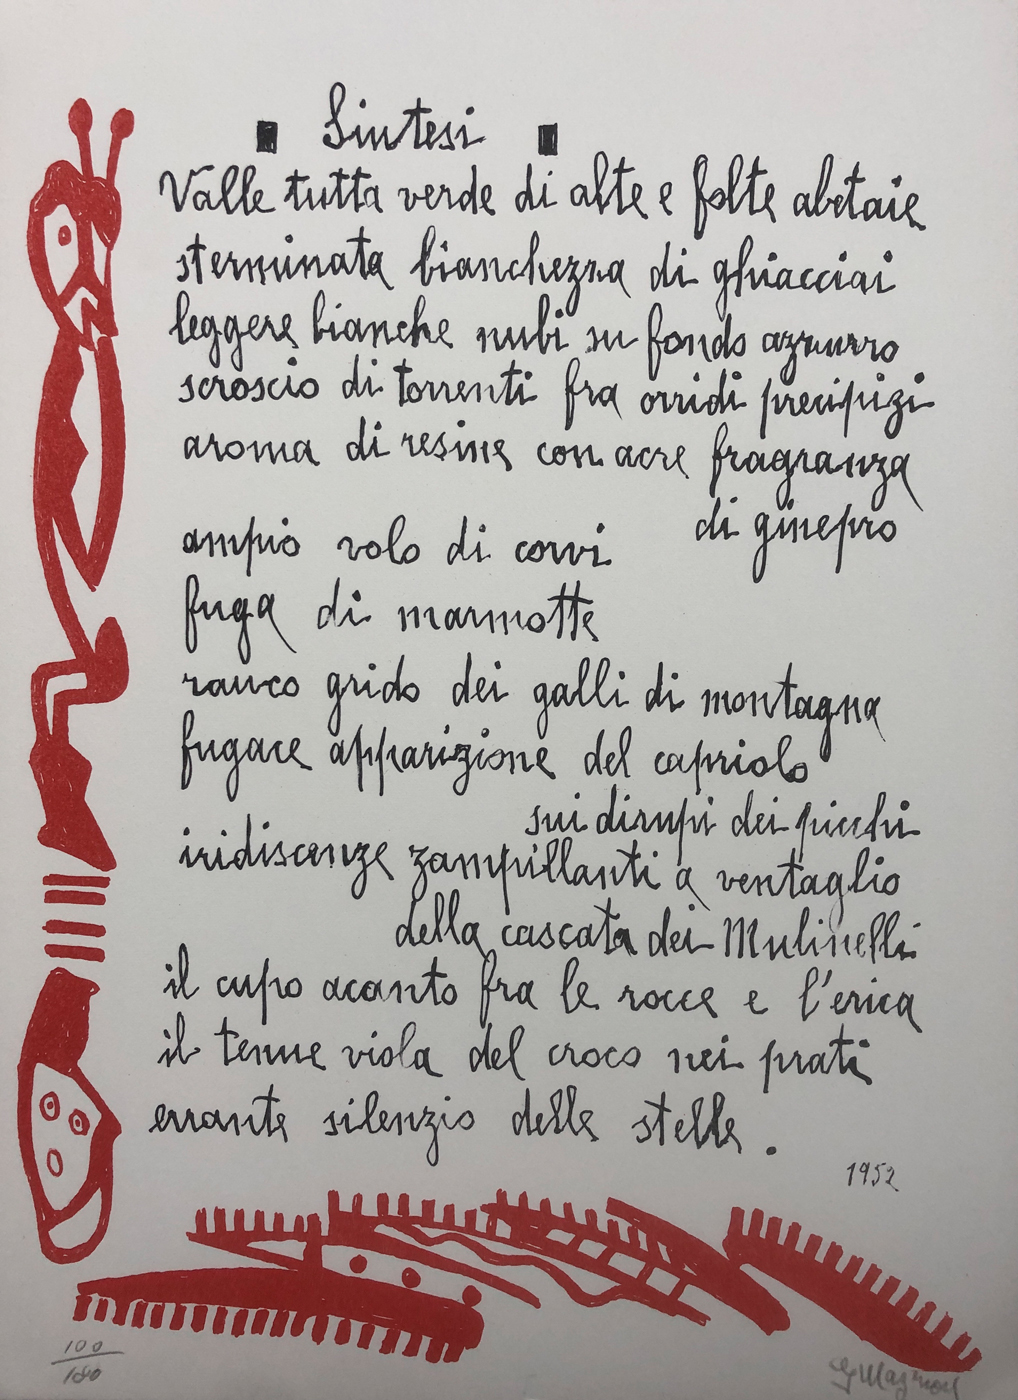 Sintesi
Valle tutta verde di alte e folte abetaie
sterminata bianchezza di ghiacciai
leggere bianche nubi su fondo azzurro
scroscio di torrenti fra orridi precipizi
aroma di resine con acre fragranza
di ginepro
ampio volo di corvi
fuga di marmotte
rauco grido dei galli di montagna
fugace apparizione del capriolo
sui dirupi dei picchi
iridiscenze zampillanti a ventaglio
della cascata dei Mulinelli
il cupo acanto fra le rocce e l'erica
il tenue viola del croco nei prati
errante silenzio delle stelle.
1952
100
180